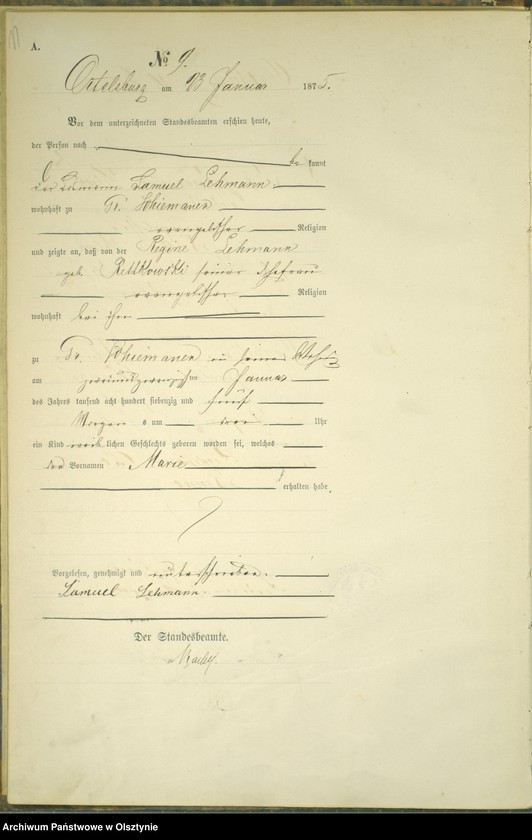 A.
No 9.
Ortelsburg am 23 Januar 1875.
Vor dem unterzeichneten Standesbeamten erschien heute,
der Person nach
be kannt
der Samuel Lehmann
wohnhaft zu Gr. Schiemanen
evangelischer Religion
und zeigte an, daß von der Regine Lehmann
geb. seiner Ehefrau
evangelischer Religion
wohnhaft bei ihm
zu Gr. Schiemanen in seiner
am zweiundzwanzigsten Januar
des Jahres tausend acht hundert siebenzig und fünf
Morgens um drei Uhr
ein Kind weib lichen Geschlechts geboren worden sei, welches
den Vornamen Marie
erhalten habe.
Vorgelesen, genehmigt und unterschrieben.
Samuel Lehmann
Der Standesbeamte.
Archiwum Państwowe w Olsztynie